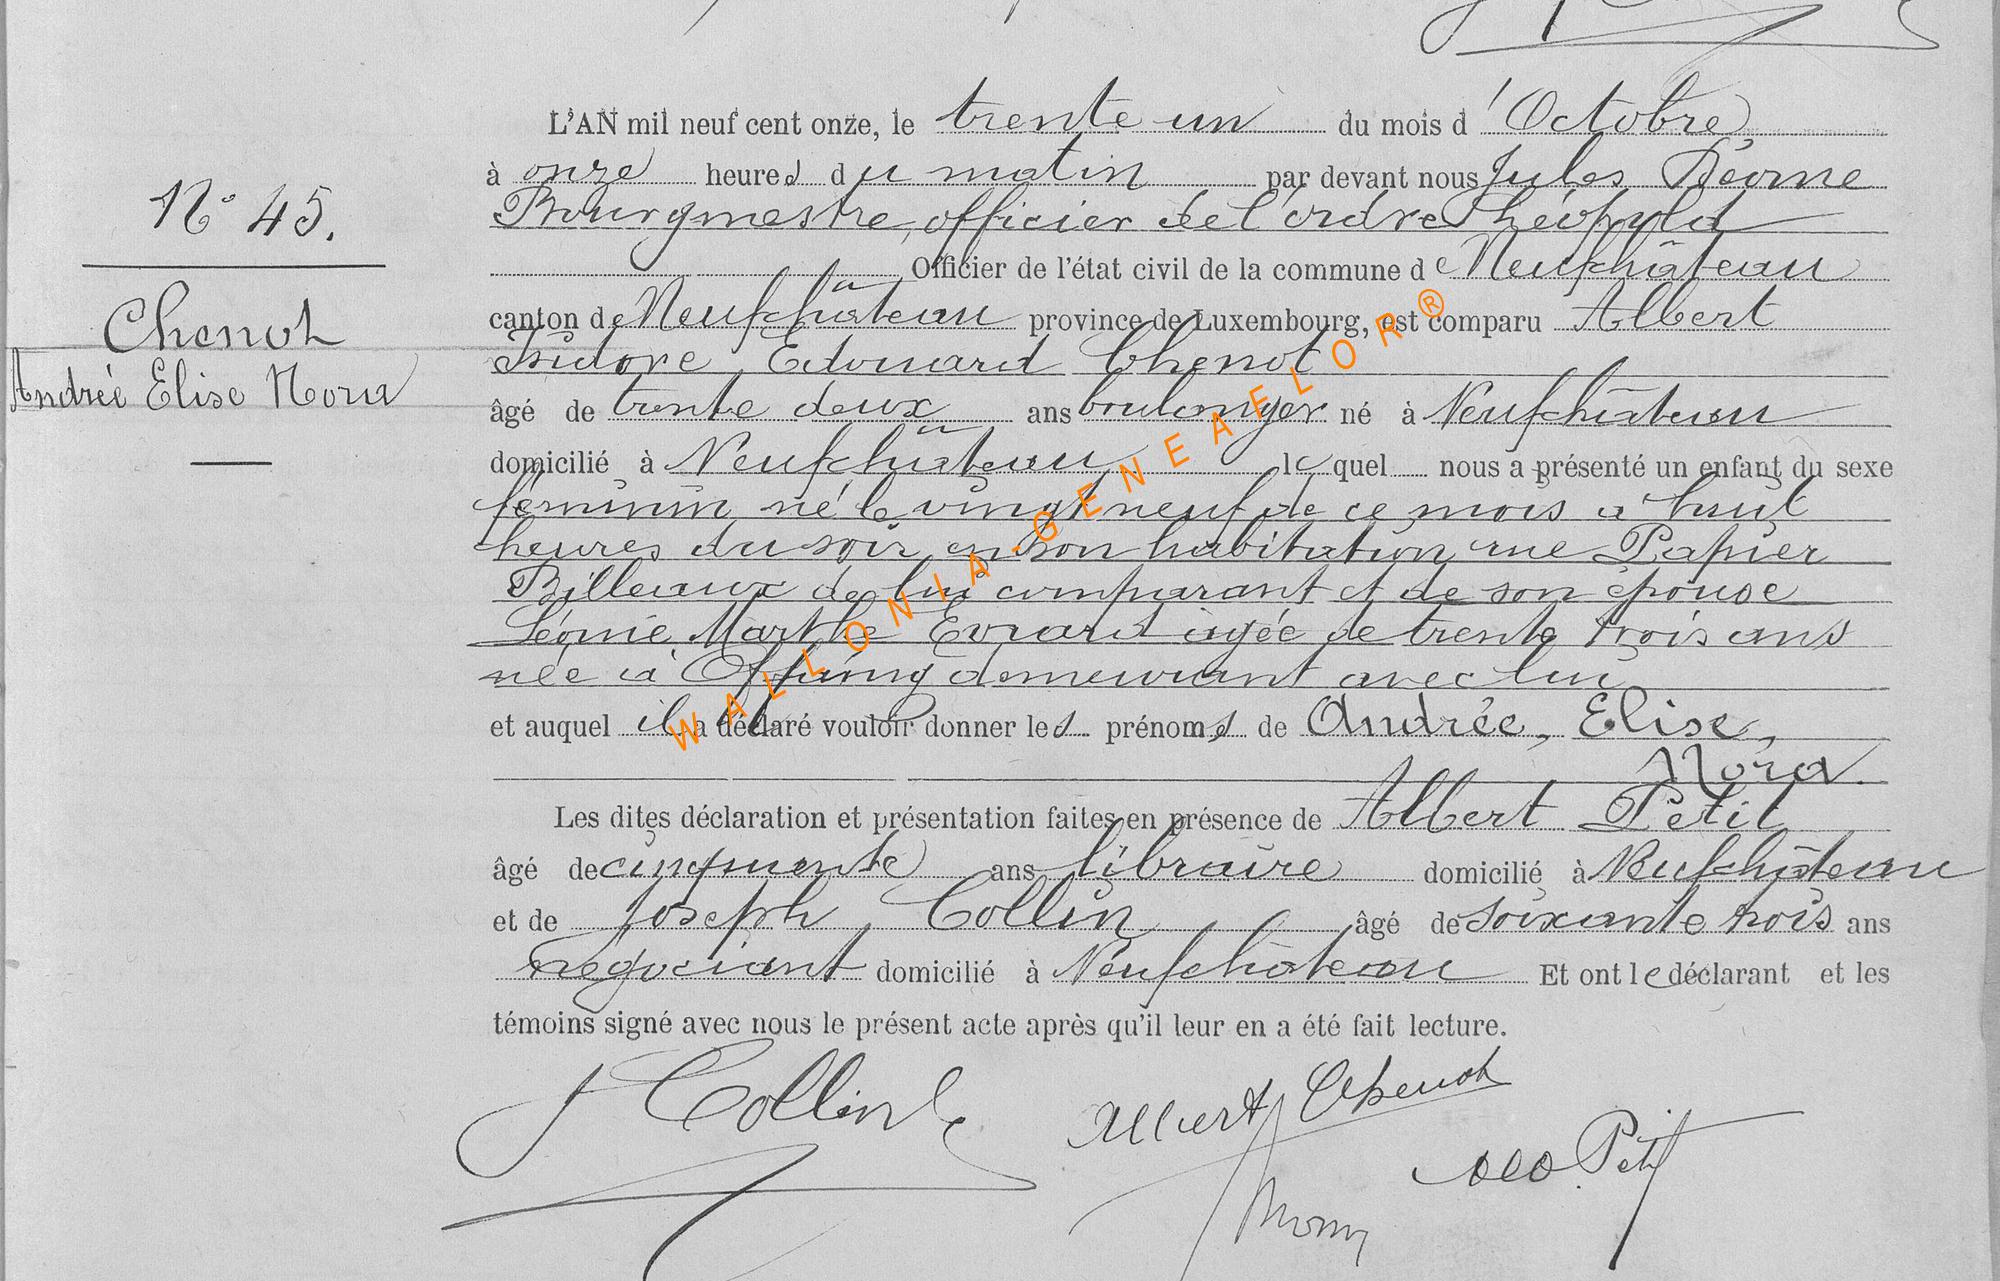 L'AN mil neuf cent onze, le trente un du mois d'Octobre
à onze heures du matin par devant nous Jules
Bourgmestre, officier de l'ordre Léopold
Officier de l'état civil de la commune de Neufchâteau
N° 45.
canton de Neufchâteau province de Luxembourg, est comparu Albert
Chenot
Isidore Edouard Chenot
Andrée Elise Nora
âgé de trente deux ans boulanger né à Neufchâteau
domicilié à Neufchâteau lequel nous a présenté un enfant du sexe
féminin né le vingt neuf de ce mois à huit
heures du soir en son habitation rue Papier
Billeaux de lui comparant et de son épouse
Léonie Marthe Evrard agée de trente trois ans
née à Offaing demeurant avec lui
et auquel il a déclaré vouloir donner les prénoms de Andrée, Elise,
Nora.
Les dites déclaration et présentation faites en présence de Albert Petit
âgé de cinquante ans libraire domicilié à Neufchâteau
et de Joseph Collin âgé de soixante trois ans
négociant domicilié à Neufchâteau Et ont le déclarant et les
témoins signé avec nous le présent acte après qu'il leur en a été fait lecture.
J Collin
Albert Chenot
Petit
WALLONIA-GENEAFLOR®